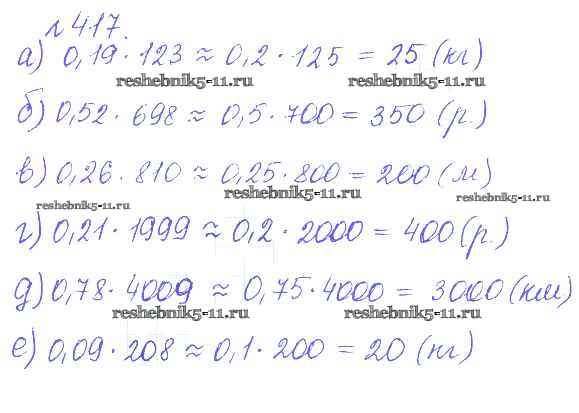 №417.
а) 0,19 · 123 ≈ 0,2 · 125 = 25 (кг)
reshebnik5-11.ru reshebnik5-11.ru
б) 0,52 · 698 ≈ 0,5 · 700 = 350 (р.)
в) 0,26 · 810 ≈ 0,25 · 800 = 200 (м)
reshebnik5-11.ru reshebnik5-11.ru reshebnik5-11.ru
г) 0,21 · 1999 ≈ 0,2 · 2000 = 400 (р.)
д) 0,78 · 4009 ≈ 0,75 · 4000 = 3000 (км)
reshebnik5-11.ru reshebnik5-11.ru
е) 0,09 · 208 ≈ 0,1 · 200 = 20 (кг)